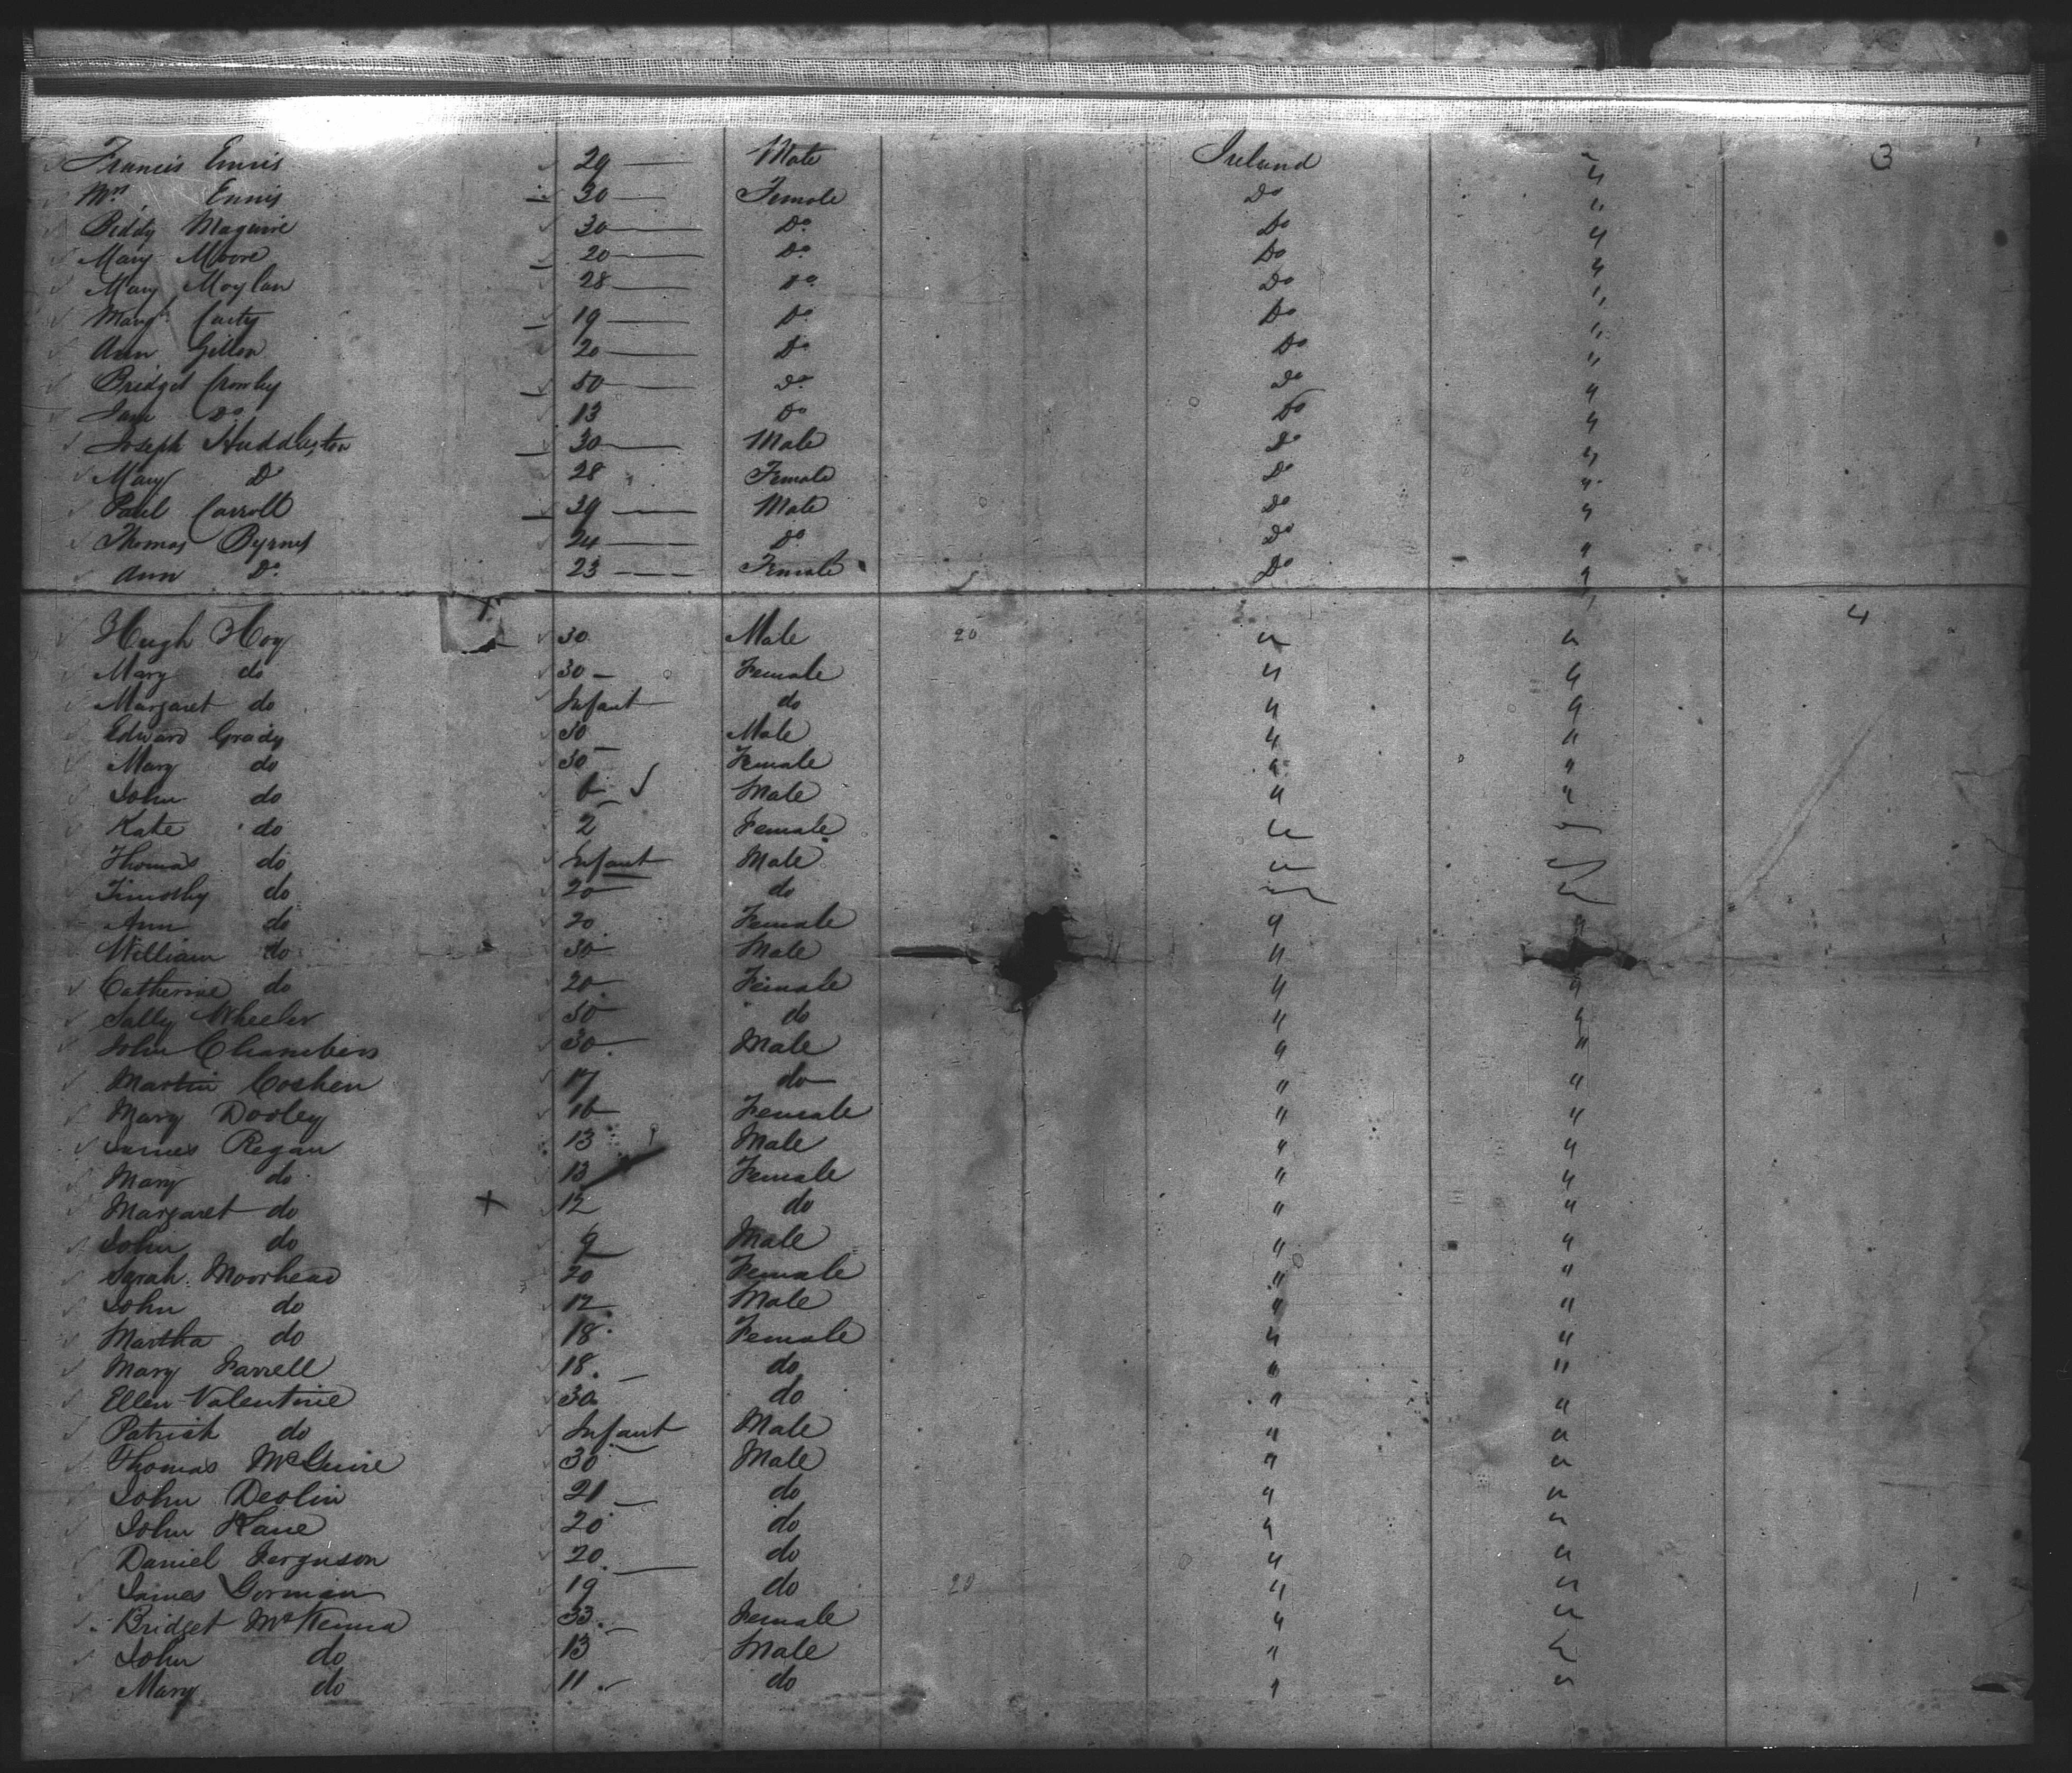 Francis Ennis 29 Male Ireland " 3
Mrs Ennis 30 Female Do "
Biddy Maguire 30 Do Do "
Mary Moore 20 Do Do "
Mary Moylan 28 Do Do "
Mary Carty 19 Do Do "
Ann Gillon 20 Do Do "
Bridget Crowley 50 Do Do "
Jane Do 13 Do Do "
Joseph Huddleston 30 Male Do "
Mary Do 28 Female Do "
Paul Carroll 39 Male Do "
Thomas Byrnes 24 Do Do "
Ann Do 23 Female Do "
Hugh Hoy 30 Male 20 " " 4
Mary do 30 Female " "
Margaret do Infant do " "
Edward Grady 30 Male " "
Mary do 30 Female " "
John do 6 Male " "
Kate do 2 Female " "
Thomas do Infant Male " "
Timothy do 20 do " "
Ann do 20 Female " "
William do 30 Male "
Catherine do 20 Female " "
Sally Wheeler 50 do " "
John Chambers 30 Male " "
Martin Coshen 17 do " "
Mary Dooley 16 Female " "
James Regan 13 Male " "
Mary do 13 Female " "
Margaret do 12 do " "
John do 9 Male " "
Sarah Moorhead 20 Female " "
John do 12 Male " "
Martha do 18 Female " "
Mary Farrell 18 do " "
Ellen Valentine 30 do " "
Patrick do Infant Male " "
Thomas McGuire 30 Male " "
John Devlin 21 do " "
John Kane 20 do " "
Daniel Ferguson 20 do " "
James Gorman 19 do 20 " "
Bridget McKenna 33 Female " "
John do 13 Male " "
Mary do 11 do " "